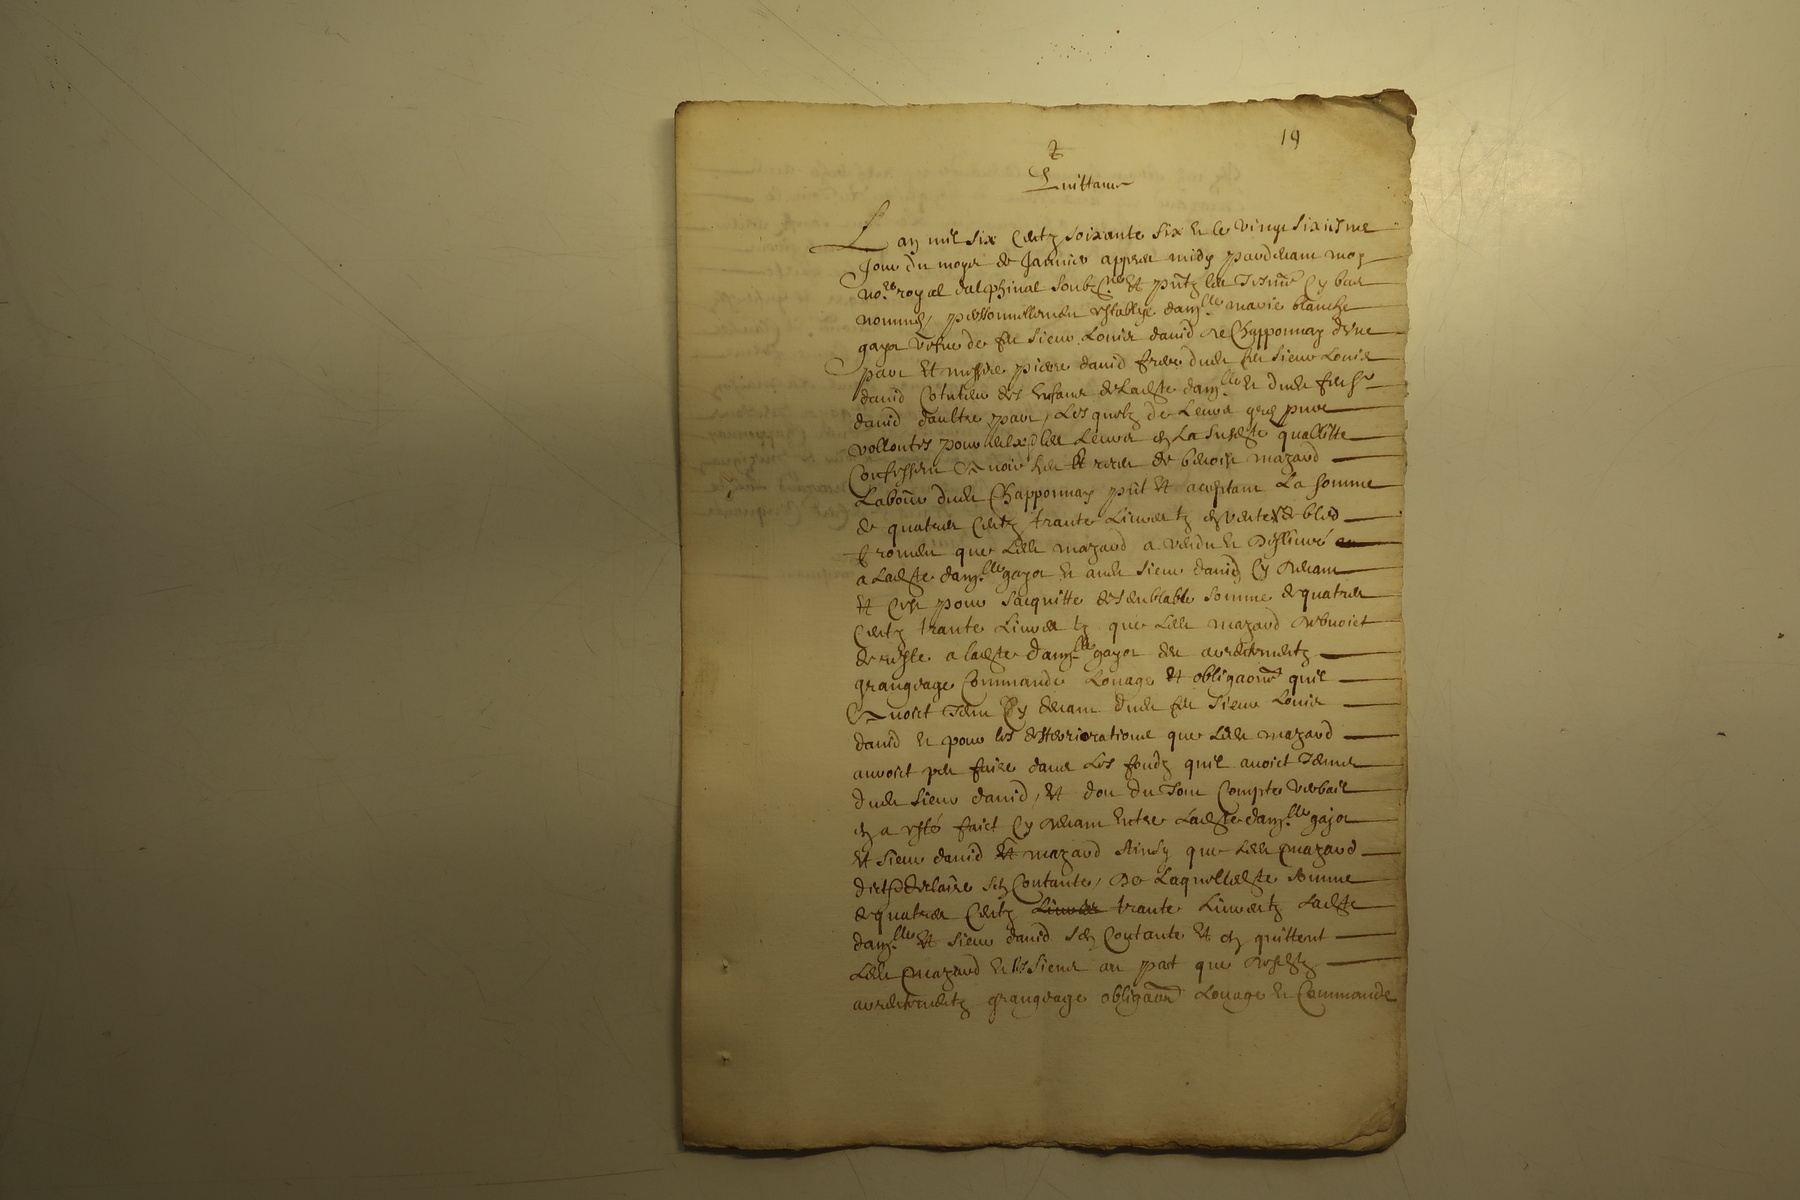 19
Quittance
Lan mil six centz soixante six et le vingt sixiesme
Jour du moys de Janvier appres midy pardevant moy
no.re royal dalphinal soubz.né et pntz les tesmns cy bas
nommes, personnellement establye dam.lle marie blanche
gayot vefve de feu sieur Louis david de Chapponnay dune
part et messire pierre david frere dudt feu sieur Louis
david Cotuteur des enfans de ladste dam.lle et dudt feu sr
david daultre part, Lesquelz de Leurs gres pure
vollontés pour eulx et les Leurs en La susdste quallitte
Confessent avoir heu et receu de benoist mazard
Labour dudt Chapponnay pnt et aceptant La somme
de quatres centz trante Livres tz en vente de bled
froment que Ledt mazard a vendu et deslivré
a Ladste dam.lle gayot et audt sieur david cy devant
et cest pour sacquitte de semblable somme de quatres
centz trante Livres tz que Ledt mazard debvoict
de reste a ladste dam.lle gayot des arrentementz
grangeage Commande Louage et obligaons quil
avoict tenu cy devant dudt feu sieur Louis
david et pour les desteriorations que Ledt mazard
auvoict peu faire dans Les fondz quil avoict tenus
dudt sieur david, et don du tout Compte verbail
en a esté faict cy devant entre Ladste dam.lle gajot
et sieur david et mazard Ainsy que Ledt mazard
dict et desclaire sen Contante, De Laquelle dste somme
de quatres centz trante Livres tz Ladste
dam.lle et sieur david sen Contante et en quittent
Ledt mazard et les siens au pact que desdstz
arrentementz grangeage obligaons Louage et Commande